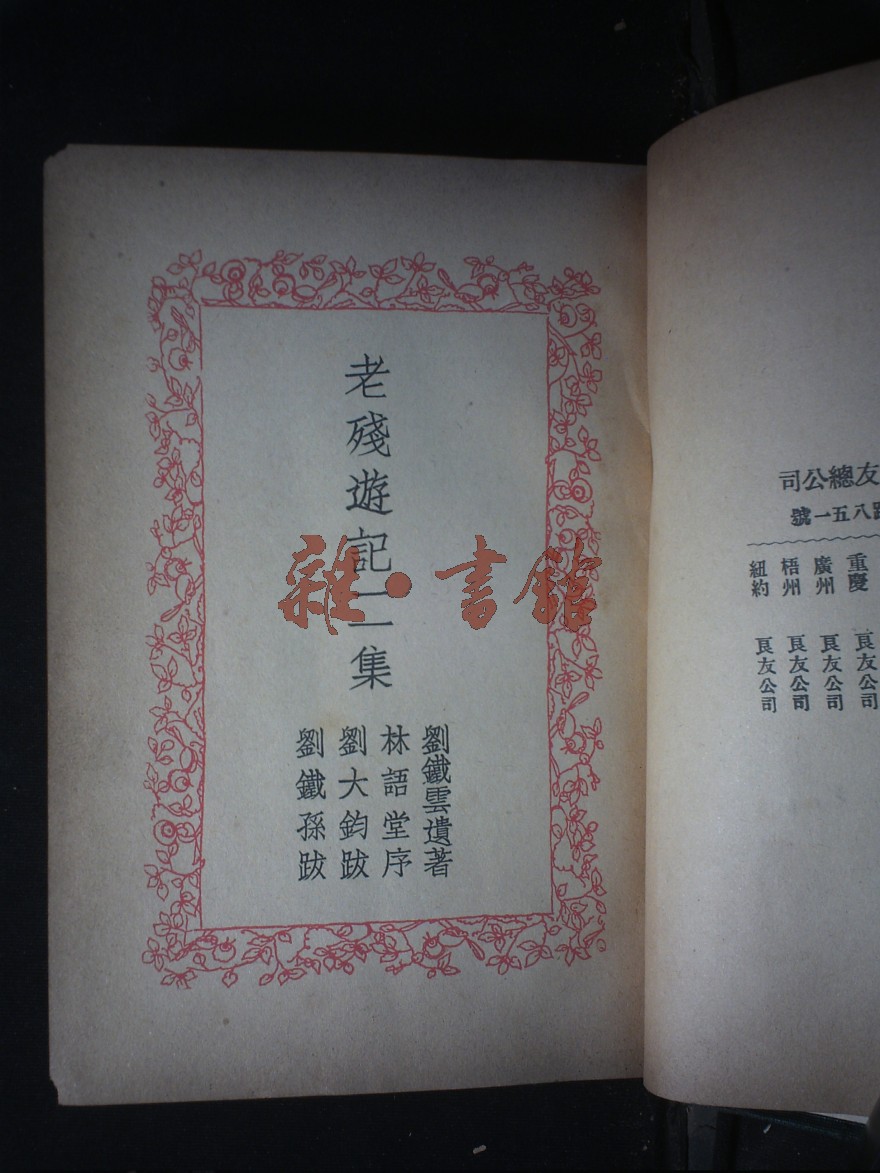 老殘遊記二集
劉鐵雲遺著
林語堂序
劉大鈞跋
劉鐵孫跋
雜·書館
友總公司
路八五一號
重慶 良友公司
廣州 良友公司
梧州 良友公司
紐約 良友公司